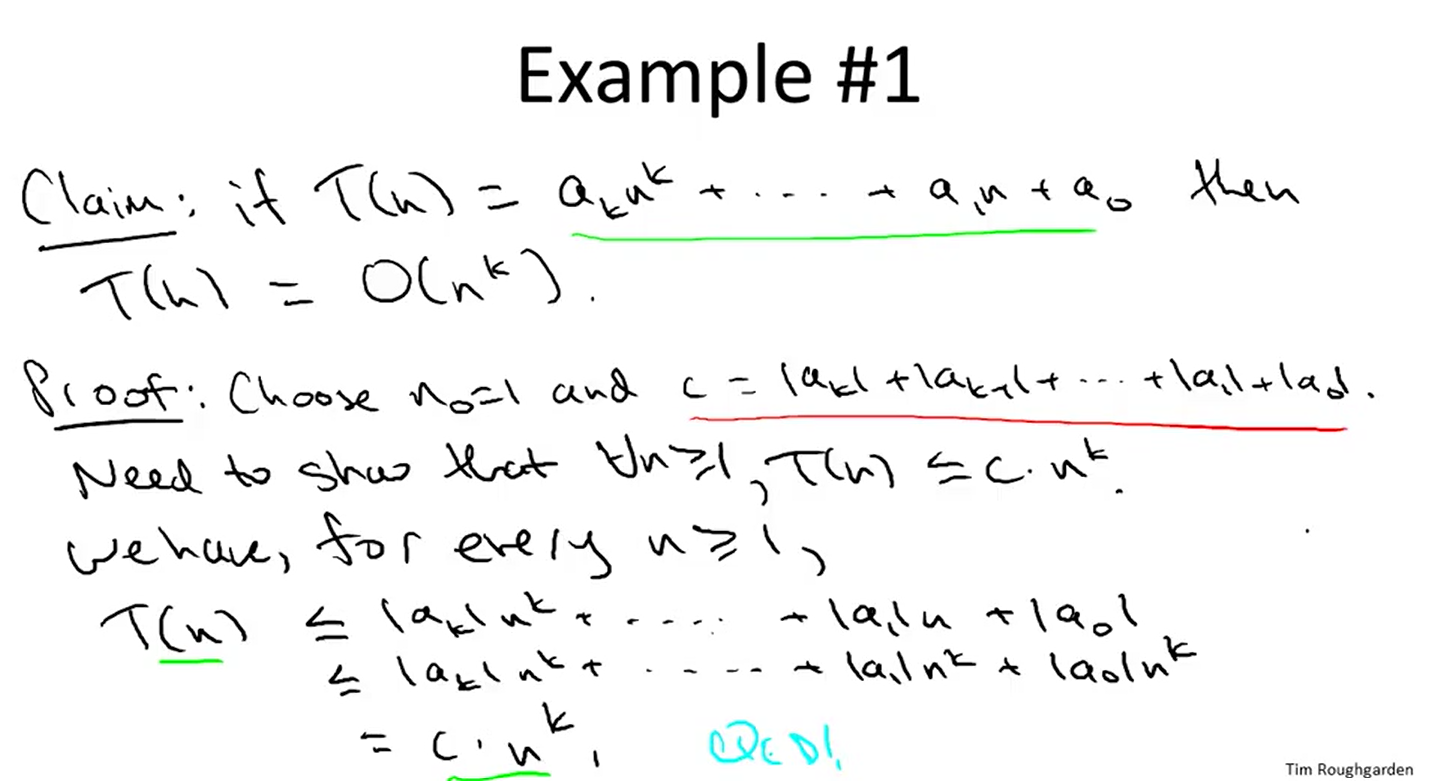 Example #1
Claim: if T(n) = aₖnᵏ + ... + a₁n + a₀ then
T(n) = O(nᵏ).
Proof: Choose n₀=1 and c = |aₖ| + |aₖ₋₁| + ... + |a₁| + |a₀|.
Need to show that ∀n≥1, T(n) ≤ c·nᵏ.
We have, for every n ≥ 1,
T(n) ≤ |aₖ|nᵏ + ..... + |a₁|n + |a₀|
≤ |aₖ|nᵏ + ..... + |a₁|nᵏ + |a₀|nᵏ
= c·nᵏ. QED!
Tim Roughgarden